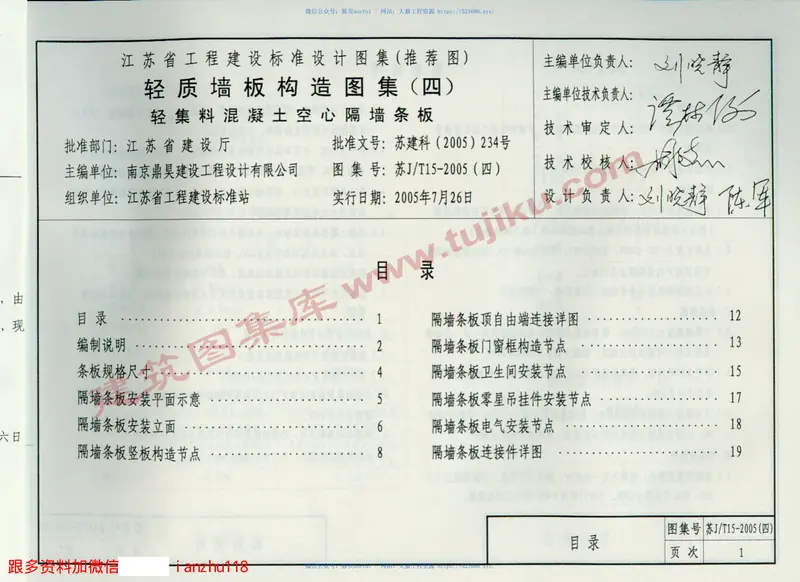 江苏省工程建设标准设计图集(推荐图)
轻质墙板构造图集(四)
轻集料混凝土空心隔墙条板
批准部门: 江苏省建设厅
批准文号: 苏建科(2005)234号
主编单位: 南京鼎昊建设工程设计有限公司
图 集 号: 苏J/T15-2005(四)
组织单位: 江苏省工程建设标准站
实行日期: 2005年7月26日
主编单位负责人: 刘晓静
主编单位技术负责人:
技 术 审 定 人:
技 术 校 核 人:
设 计 负 责 人: 刘晓静 陈军
目 录
目 录 1
编制说明 2
条板规格尺寸 4
隔墙条板安装平面示意 5
隔墙条板安装立面 6
隔墙条板竖板构造节点 8
隔墙条板顶自由端连接详图 12
隔墙条板门窗框构造节点 13
隔墙条板卫生间安装节点 15
隔墙条板零星吊挂件安装节点 17
隔墙条板电气安装节点 18
隔墙条板连接件详图 19
目录
图集号 苏J/T15-2005(四)
页 次 1
，由
，现
六日
建筑图集库 www.tujiku.com
跟多资料加微信 ianzhu118